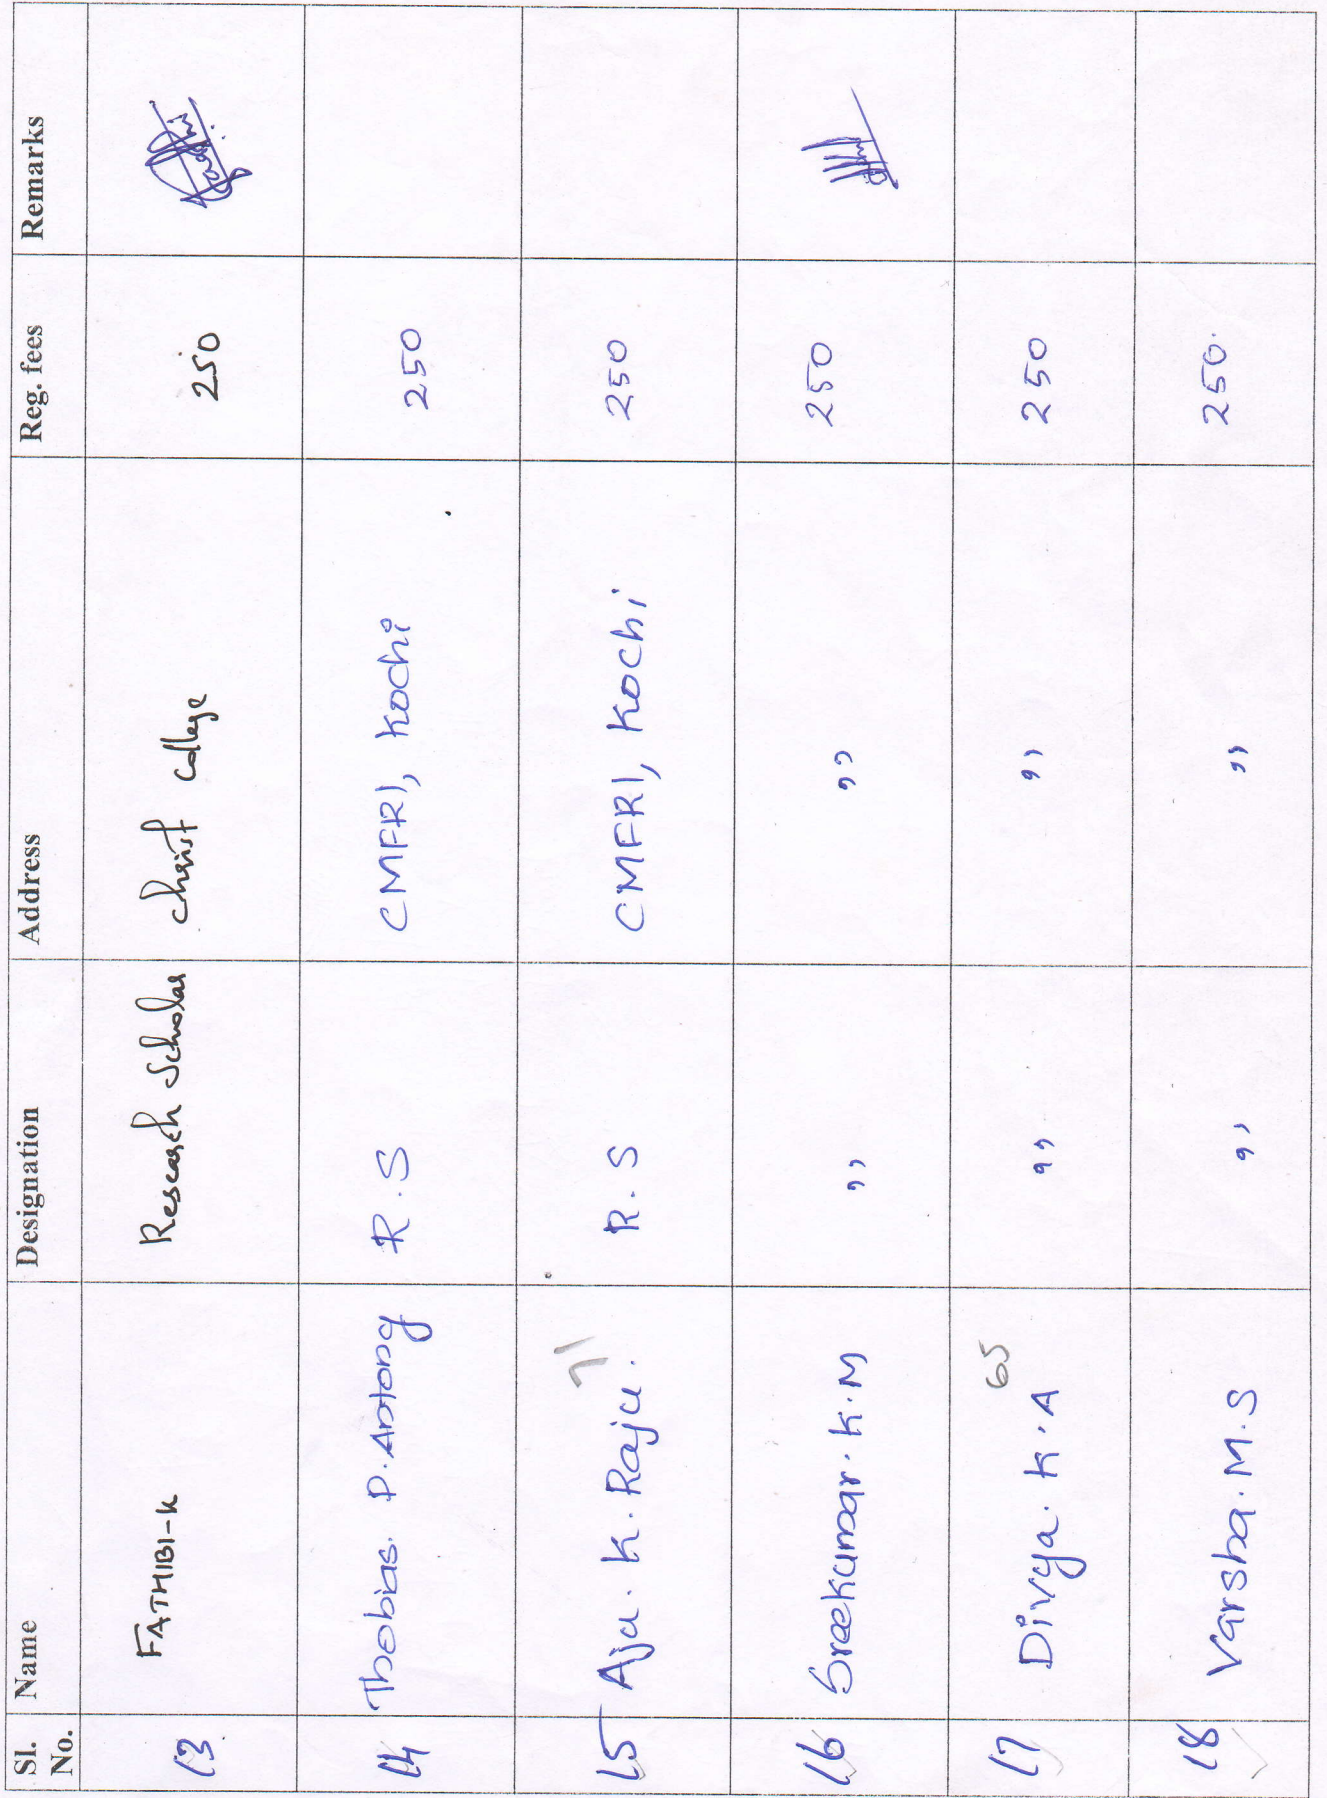 Sl. No. Name Designation Address Reg. fees Remarks
13 FATHIBI-K Research Scholar Christ College 250
14 Thobias. P. Antony R.S CMFRI, Kochi 250
15 Aju. K. Raju. 71 R.S CMFRI, Kochi 250
16 Sreekumar. K. M ,, ,, 250
17 Divya. K. A 65 ,, ,, 250
18 Varsha. M. S ,, ,, 250.